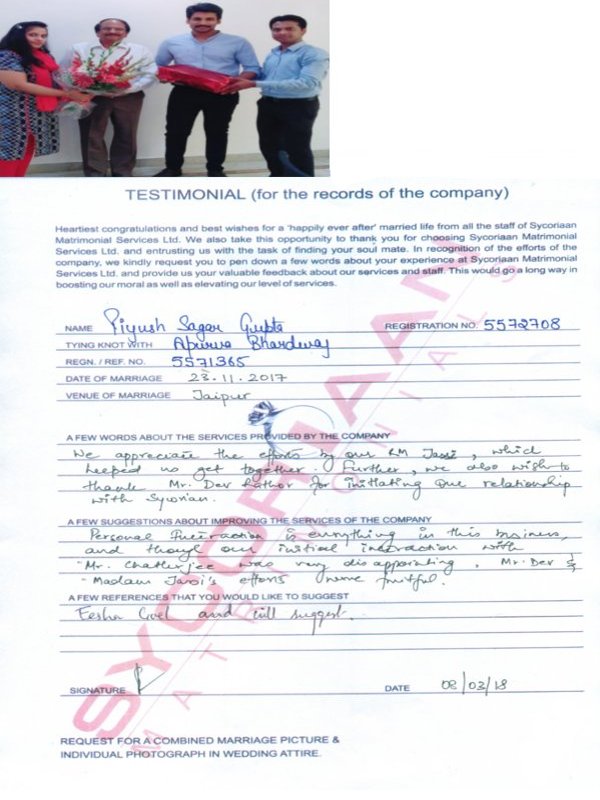 TESTIMONIAL (for the records of the company)
Heartiest congratulations and best wishes for a 'happily ever after' married life from all the staff of Sycoriaan
Matrimonial Services Ltd. We also take this opportunity to thank you for choosing Sycoriaan Matrimonial
Services Ltd. and entrusting us with the task of finding your soul mate. In recognition of the efforts of the
company, we kindly request you to pen down a few words about your experience at Sycoriaan Matrimonial
Services Ltd. and provide us your valuable feedback about our services and staff. This would go a long way in
boosting our moral as well as elevating our level of services.
NAME Piyush Sagar Gupta REGISTRATION NO. 5572708
TYING KNOT WITH Apurva Bhardwaj
REGN. / REF. NO. 5571365
DATE OF MARRIAGE 23.11.2017
VENUE OF MARRIAGE Jaipur
A FEW WORDS ABOUT THE SERVICES PROVIDED BY THE COMPANY
We appreciate the efforts by our RM Jassi, which
helped us get together. Further, we also wish to
thank Mr. Dev Rathor for initiating our relationship
with Sycorian.
A FEW SUGGESTIONS ABOUT IMPROVING THE SERVICES OF THE COMPANY
Personal Interaction is everything in this business,
and though our initial interaction with
Mr. Chatterjee was very disappointing, Mr. Dev &
Madam efforts were fruitful.
A FEW REFERENCES THAT YOU WOULD LIKE TO SUGGEST
Eesha Goel and will suggest.
SIGNATURE DATE 08/03/18
REQUEST FOR A COMBINED MARRIAGE PICTURE &
INDIVIDUAL PHOTOGRAPH IN WEDDING ATTIRE.
SYCORIAAN
MATRIMONIALS